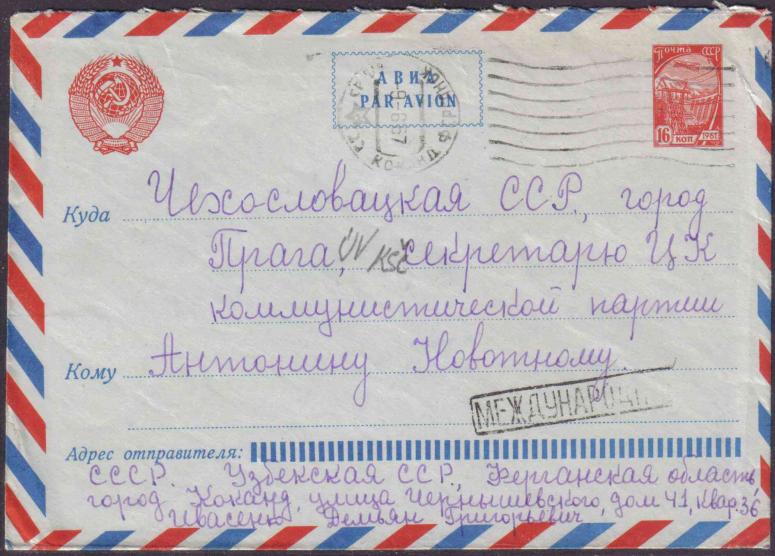 Почта СССР
АВИА
PAR AVION
КОКАНД
16 коп 1961
Куда
Чехословацкая ССР, город
Прага, секретарю ЦК
ÚV KSČ
коммунистической партии
Кому
Антонину Новотному.
МЕЖДУНАРОДН
Адрес отправителя:
СССР. Узбекская ССР, Ферганская область
город Коканд, улица Чернышевского, дом 41, Квар. 36
Ивасенко Демьян Григорьевич